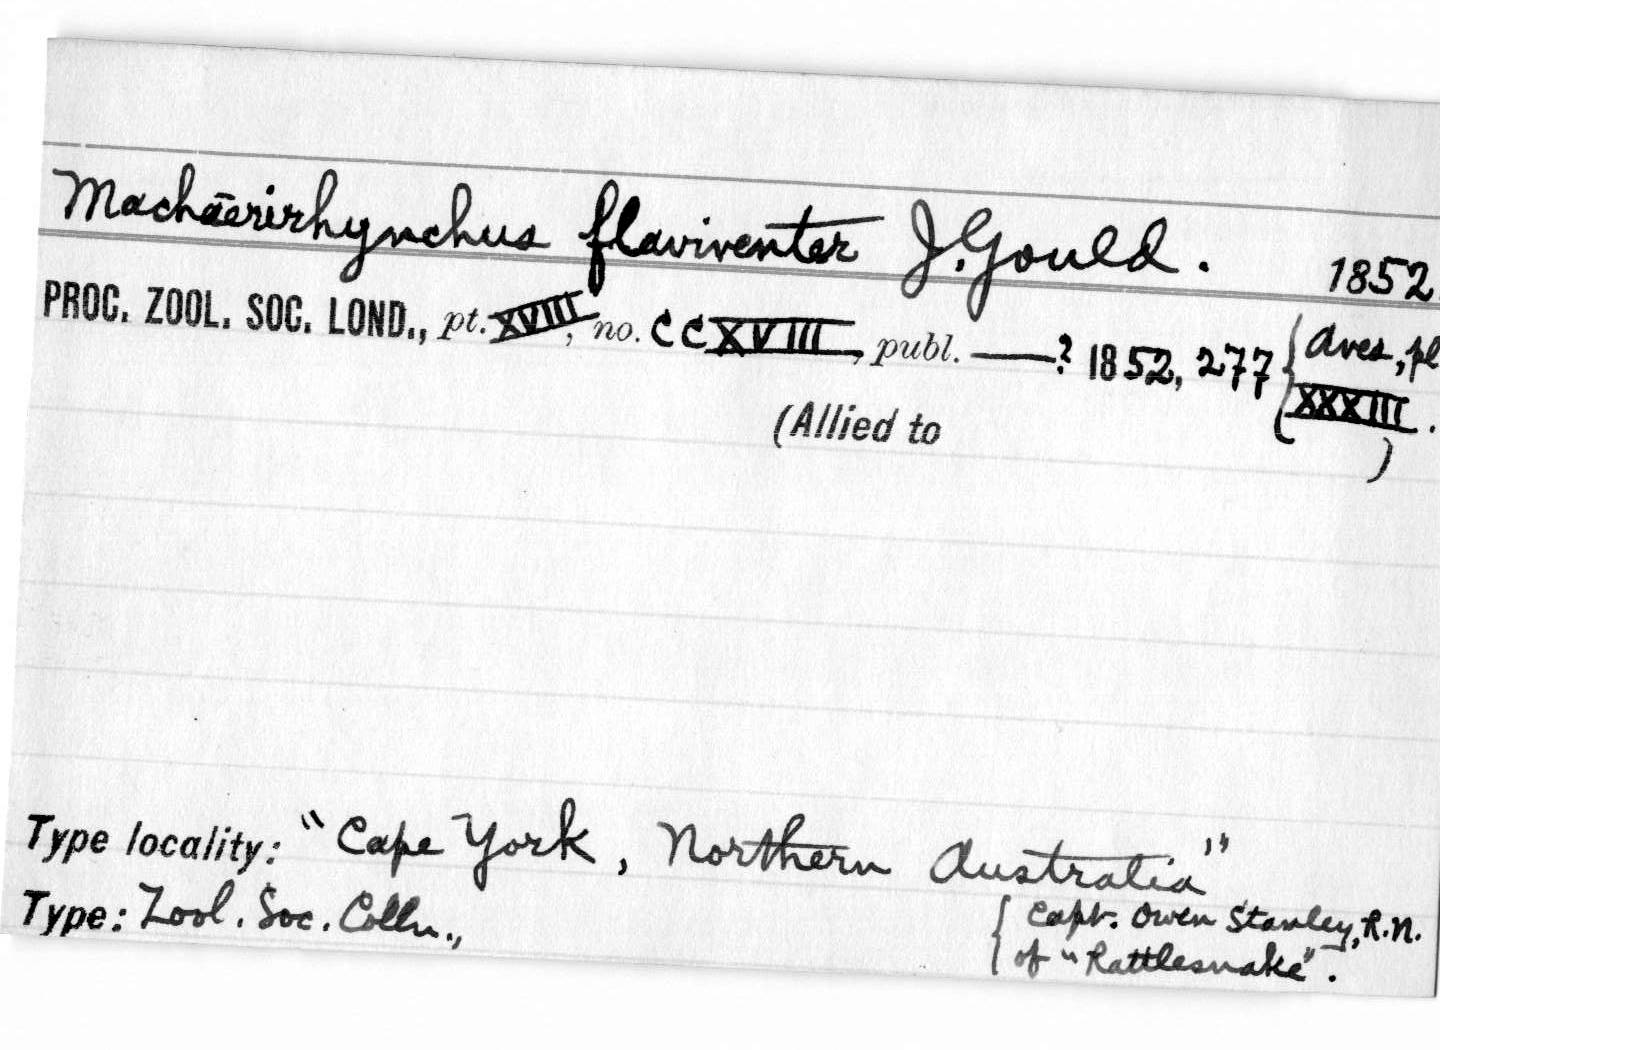 Machaerirhynchus flaviventer J. Gould. 1852.
PROC. ZOOL. SOC. LOND., pt. XVIII, no. CCXVIII, publ. —? 1852, 277 { Aves, pl
XXXIII.
(Allied to )
Type locality: "Cape York, Northern Australia"
Type: Zool. Soc. Colln., { Capt. Owen Stanley, R.N.
of "Rattlesnake".